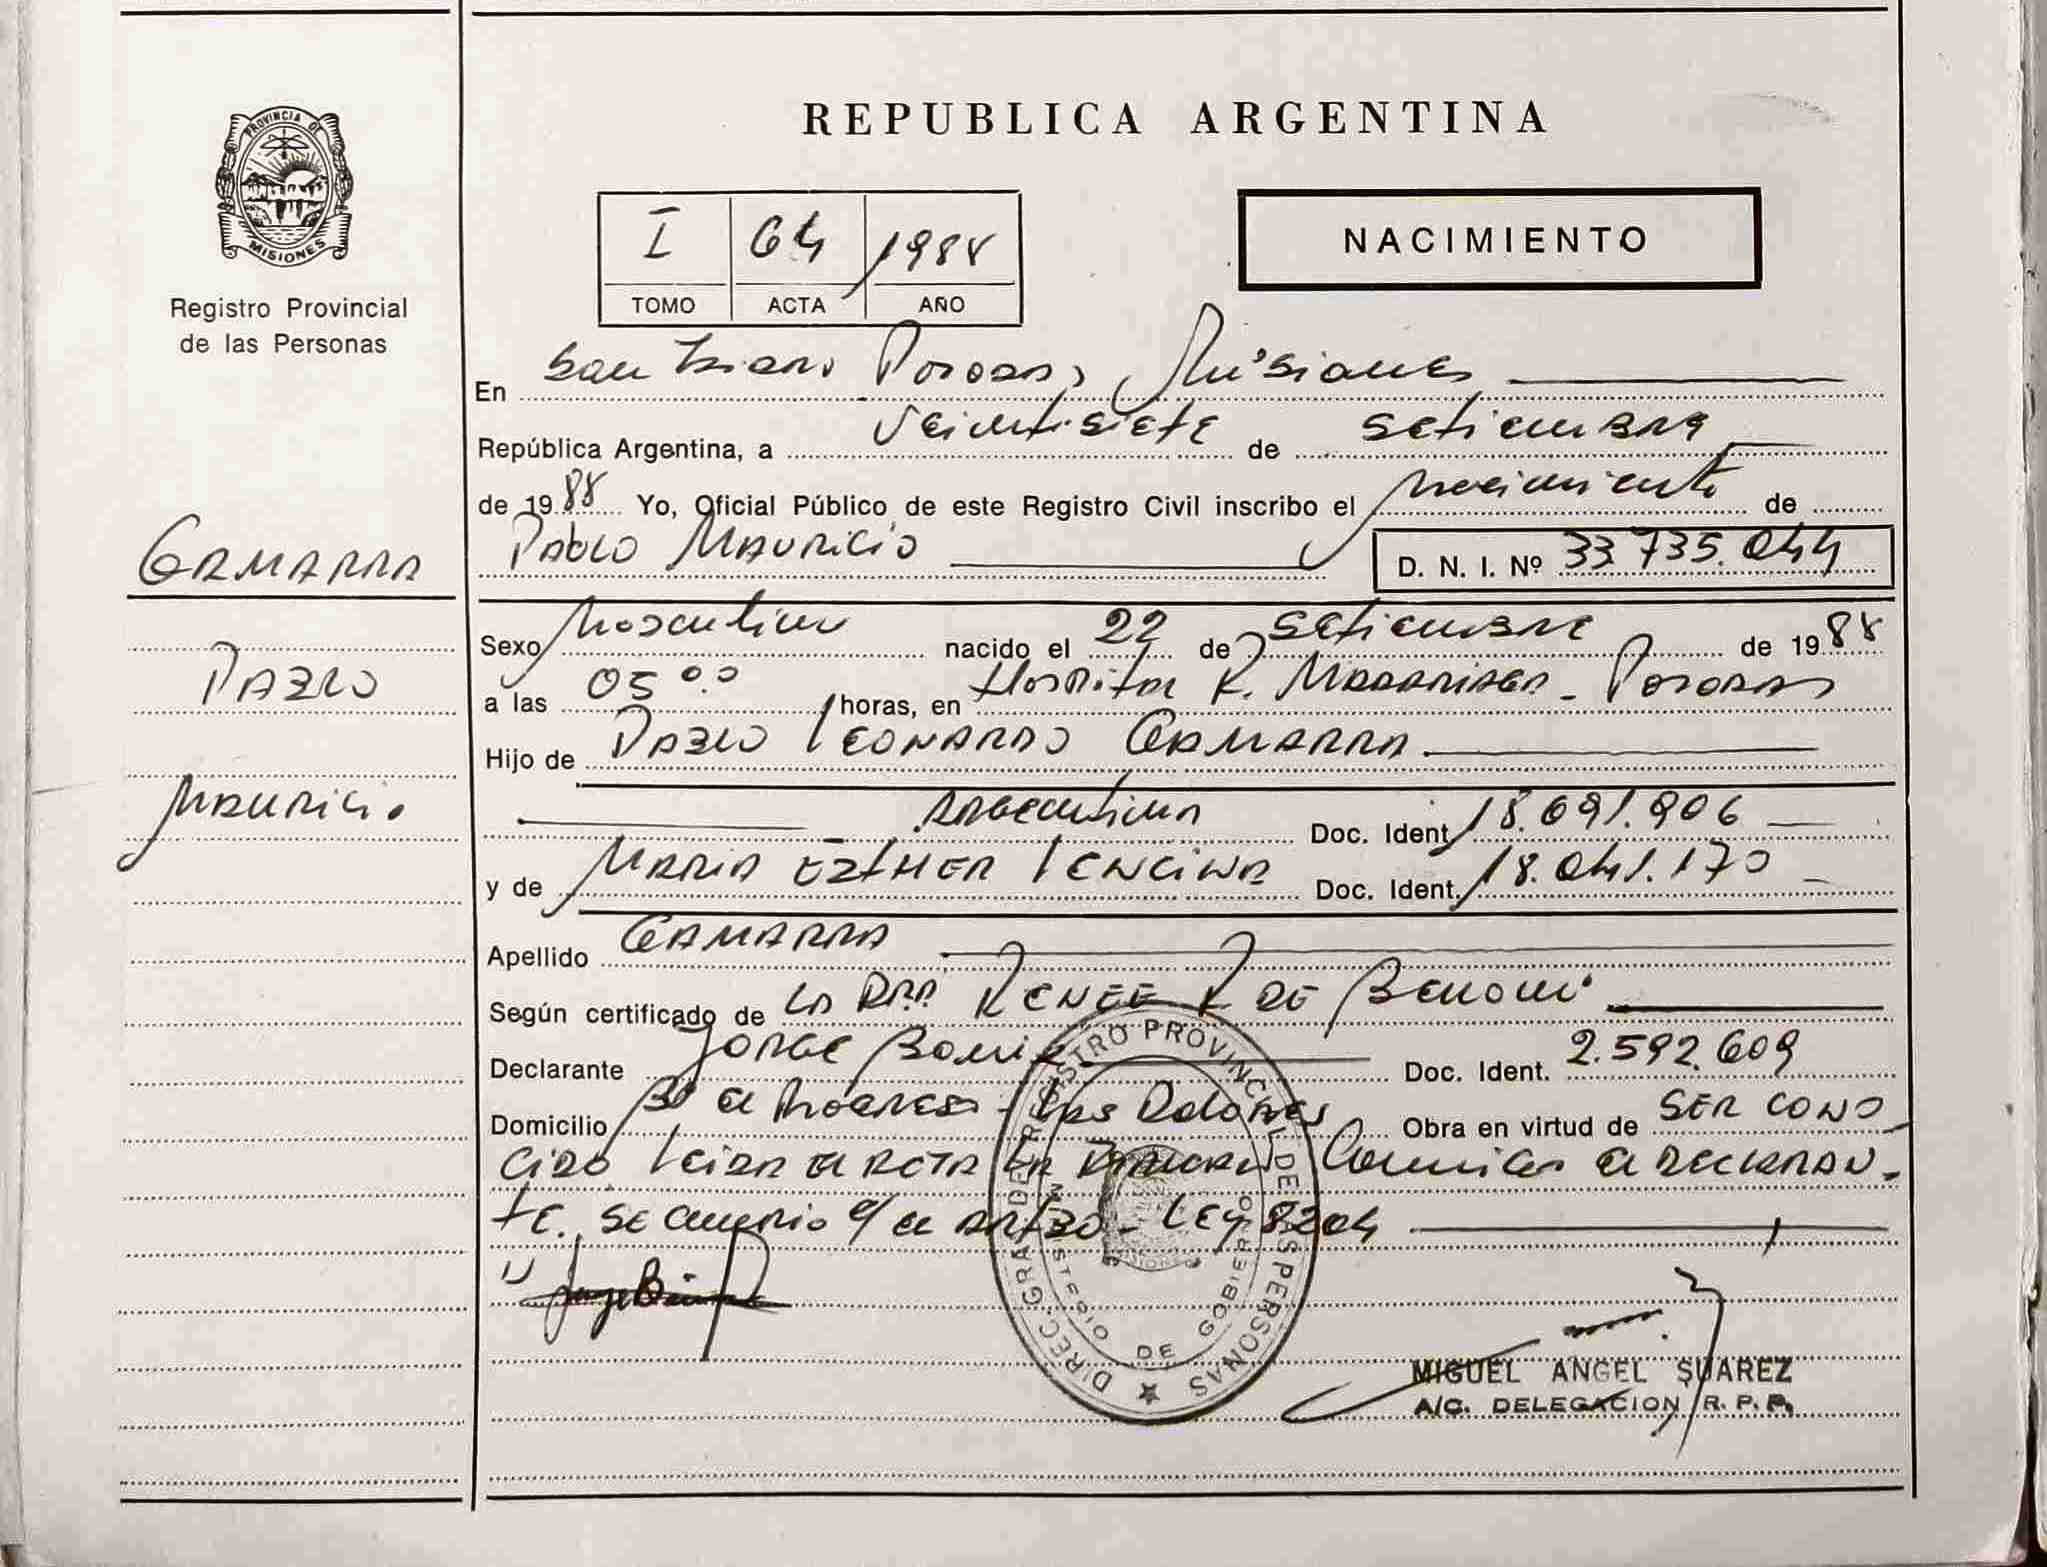 PROVINCIA DE
MISIONES
Registro Provincial
de las Personas
GAMARRA
PABLO
MAURICIO
REPUBLICA ARGENTINA
I 64 1988
TOMO ACTA AÑO
NACIMIENTO
En San Isidro Posadas, Misiones
República Argentina, a veintisiete de setiembre
de 1988 Yo, Oficial Público de este Registro Civil inscribo el nacimiento de
PABLO MAURICIO D. N. I. Nº 33.735.044
Sexo Masculino nacido el 22 de setiembre de 1988
a las 05 00 horas, en Hospital R. Madariaga - Posadas
Hijo de PABLO LEONARDO GAMARRA
Argentina Doc. Ident. 18.091.906
y de MARIA ESTHER LENCINA Doc. Ident. 18.041.170
Apellido GAMARRA
Según certificado de LA DRA RENEE R DE
Declarante JORGE Doc. Ident. 2.592.609
Domicilio Bº el Progreso - Las Dolores Obra en virtud de SER CONO
CIDO Leida el acta la el declaran-
te, se c/ el art 30 - LEY 8204
DIREC. GRAL. DE REGISTRO PROVINCIAL DE LAS PERSONAS
MINISTERIO DE GOBIERNO
MISIONES
MIGUEL ANGEL SUAREZ
A/C. DELEGACION R. P. P.